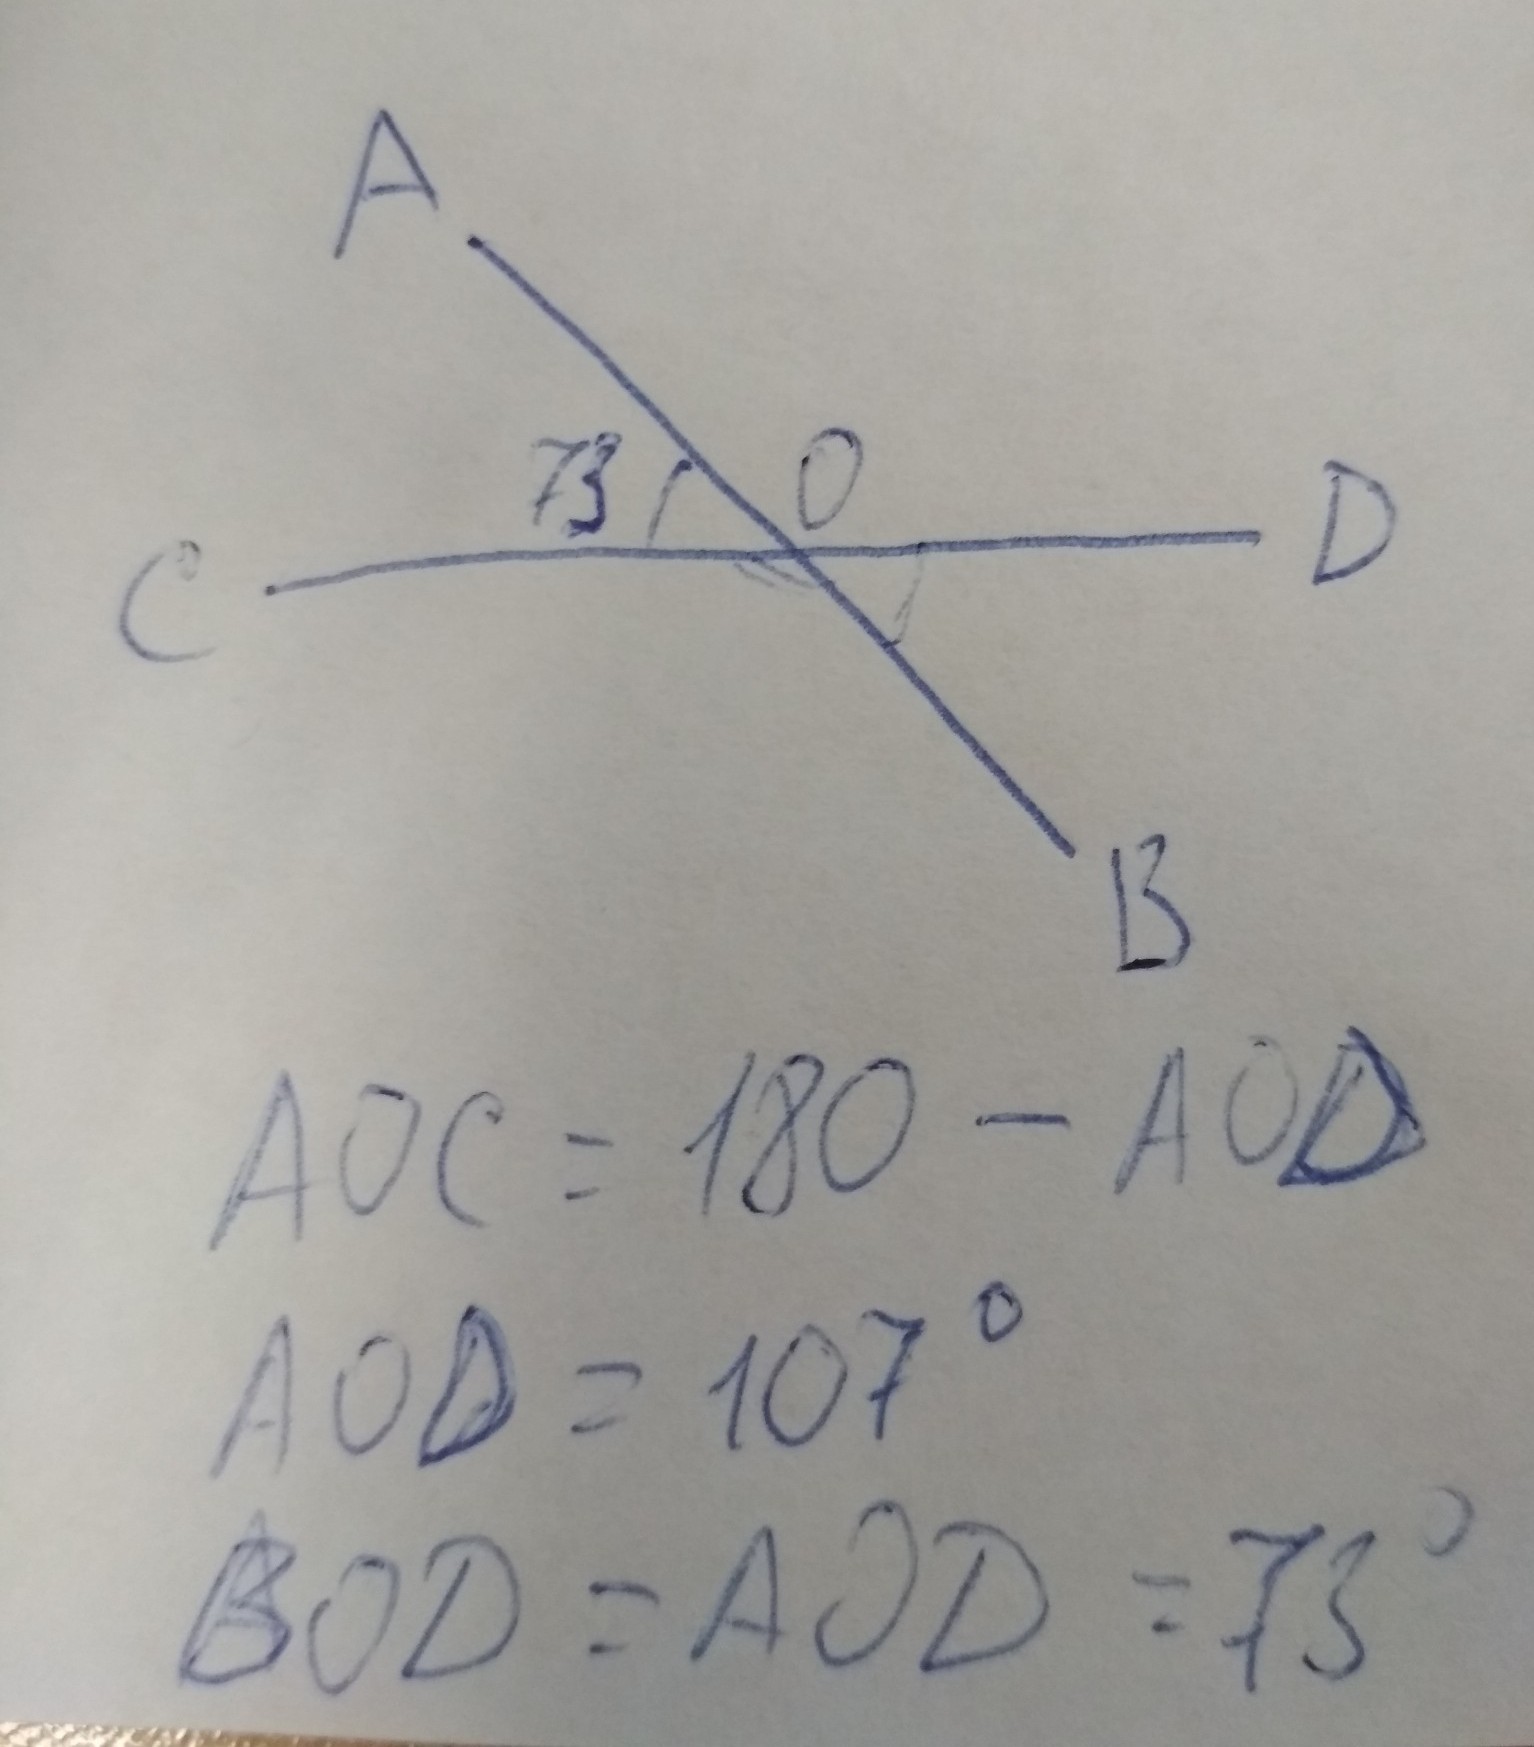 A
73
O
D
C
B
AOC = 180 - AOD
AOD = 107°
BOD = AOD = 73°